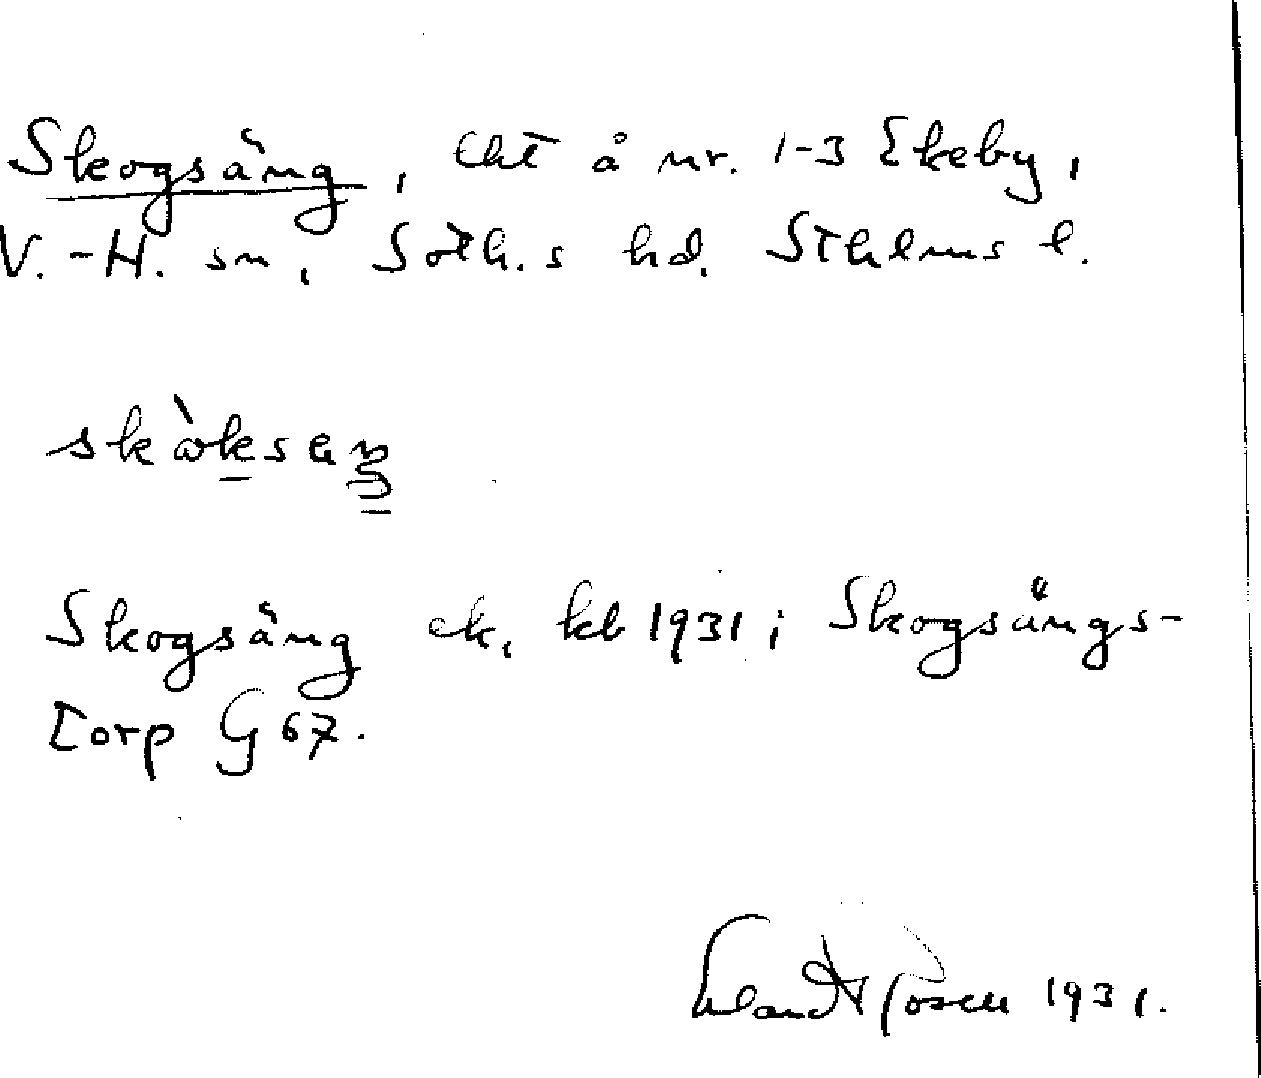 Skogsäng, lht å nr. 1-3 Ekeby,
V.-H. sn, Soth.s hd. Sthlms l.
skòksaŋ
Skogsäng ek, kb 1931; Skogsängs-
torp G 67.
Erland Rosell 1931.